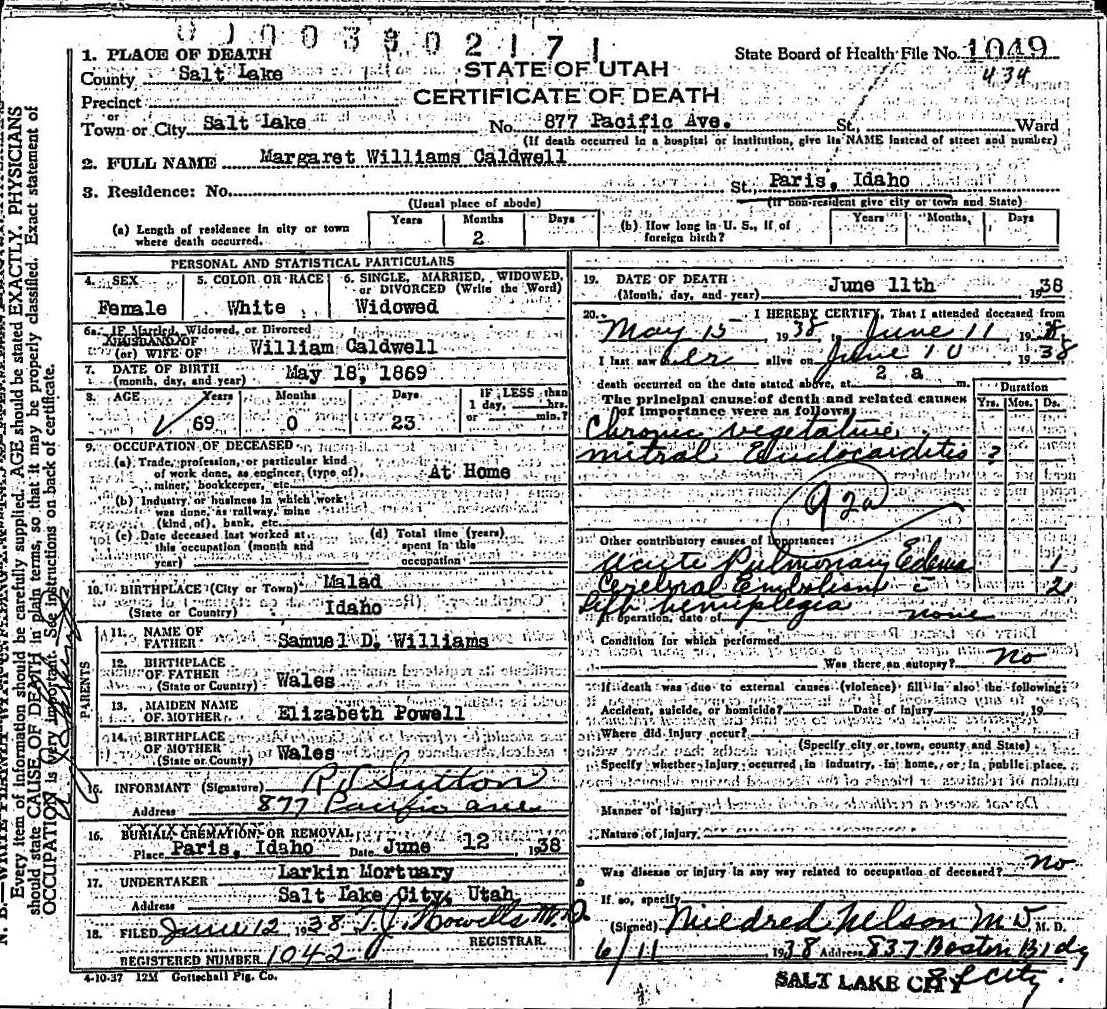 0 1 0 0 3 8 0 2 1 7 1
1. PLACE OF DEATH
State Board of Health File No. 1049
County Salt Lake
STATE OF UTAH
434
Precinct
CERTIFICATE OF DEATH
or
Town or City Salt Lake No. 877 Pacific Ave. St., Ward
(If death occurred in a hospital or institution, give its NAME instead of street and number)
2. FULL NAME Margaret Williams Caldwell
3. Residence: No. St. Paris, Idaho
(Usual place of abode) (If non-resident give city or town and State)
(a) Length of residence in city or town where death occurred. Years Months 2 Days
(b) How long in U. S., if of foreign birth? Years Months Days
PERSONAL AND STATISTICAL PARTICULARS
4. SEX Female
5. COLOR OR RACE White
6. SINGLE, MARRIED, WIDOWED, or DIVORCED (Write the Word) Widowed
6a. IF Married, Widowed, or Divorced
HUSBAND OF
(or) WIFE OF William Caldwell
7. DATE OF BIRTH
(month, day, and year) May 18, 1869
8. AGE Years 69 Months 0 Days 23 IF LESS than 1 day, hrs. or min.?
9. OCCUPATION OF DECEASED
(a) Trade, profession, or particular kind
of work done, as engineer, (type of), At Home
miner, bookkeeper, etc.
(b) Industry or business in which work
was done, as railway, mine
(kind of), bank, etc.
(c) Date deceased last worked at this occupation (month and year)
(d) Total time (years) spent in this occupation
10. BIRTHPLACE (City or Town) Malad
(State or Country) Idaho
PARENTS
11. NAME OF FATHER Samuel D. Williams
12. BIRTHPLACE OF FATHER
(State or Country) Wales
13. MAIDEN NAME OF MOTHER Elizabeth Powell
14. BIRTHPLACE OF MOTHER
(State or Country) Wales
15. INFORMANT (Signature) R J Sutton
Address 877 Pacific ave
16. BURIAL, CREMATION, OR REMOVAL
Place Paris, Idaho Date June 12, 1938
17. UNDERTAKER Larkin Mortuary
Address Salt Lake City, Utah
18. FILED June 12 1938 T. J. Howells M.D.
REGISTRAR.
REGISTERED NUMBER 1042
4-10-37 12M Gottschall Ptg. Co.
19. DATE OF DEATH
(Month, day, and year) June 11th 1938
20. I HEREBY CERTIFY, That I attended deceased from
May 15 1938, to June 11 1938
I last saw her alive on June 10 1938
death occurred on the date stated above, at 2 a m.
The principal cause of death and related causes
of importance were as follows:
Duration
Yrs. Mos. Ds.
Chronic vegetative
mitral Endocarditis ?
92a
Other contributory causes of importance:
Acute Pulmonary Edema 1
Cerebral Embolism c̄ 2
left hemiplegia
If operation, date of none
Condition for which performed
Was there an autopsy? no
If death was due to external causes (violence) fill in also the following:
Accident, suicide, or homicide? Date of injury 19
Where did injury occur?
(Specify city or town, county and State)
Specify whether injury occurred in industry, in home, or in public place.
Manner of injury
Nature of injury
Was disease or injury in any way related to occupation of deceased? no
If so, specify
(Signed) Mildred Nelson M D M. D.
6/11 1938 Address 837 Boston Bldg
SALT LAKE CITY
S L City.
Every item of information should be carefully supplied. AGE should be stated EXACTLY. PHYSICIANS
should state CAUSE OF DEATH in plain terms, so that it may be properly classified. Exact statement of
OCCUPATION is very important. See instructions on back of certificate.